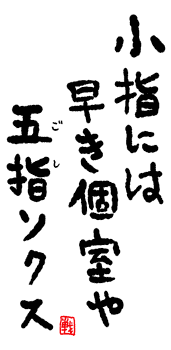 小指には
早き個室や
五指ソクス
ごし